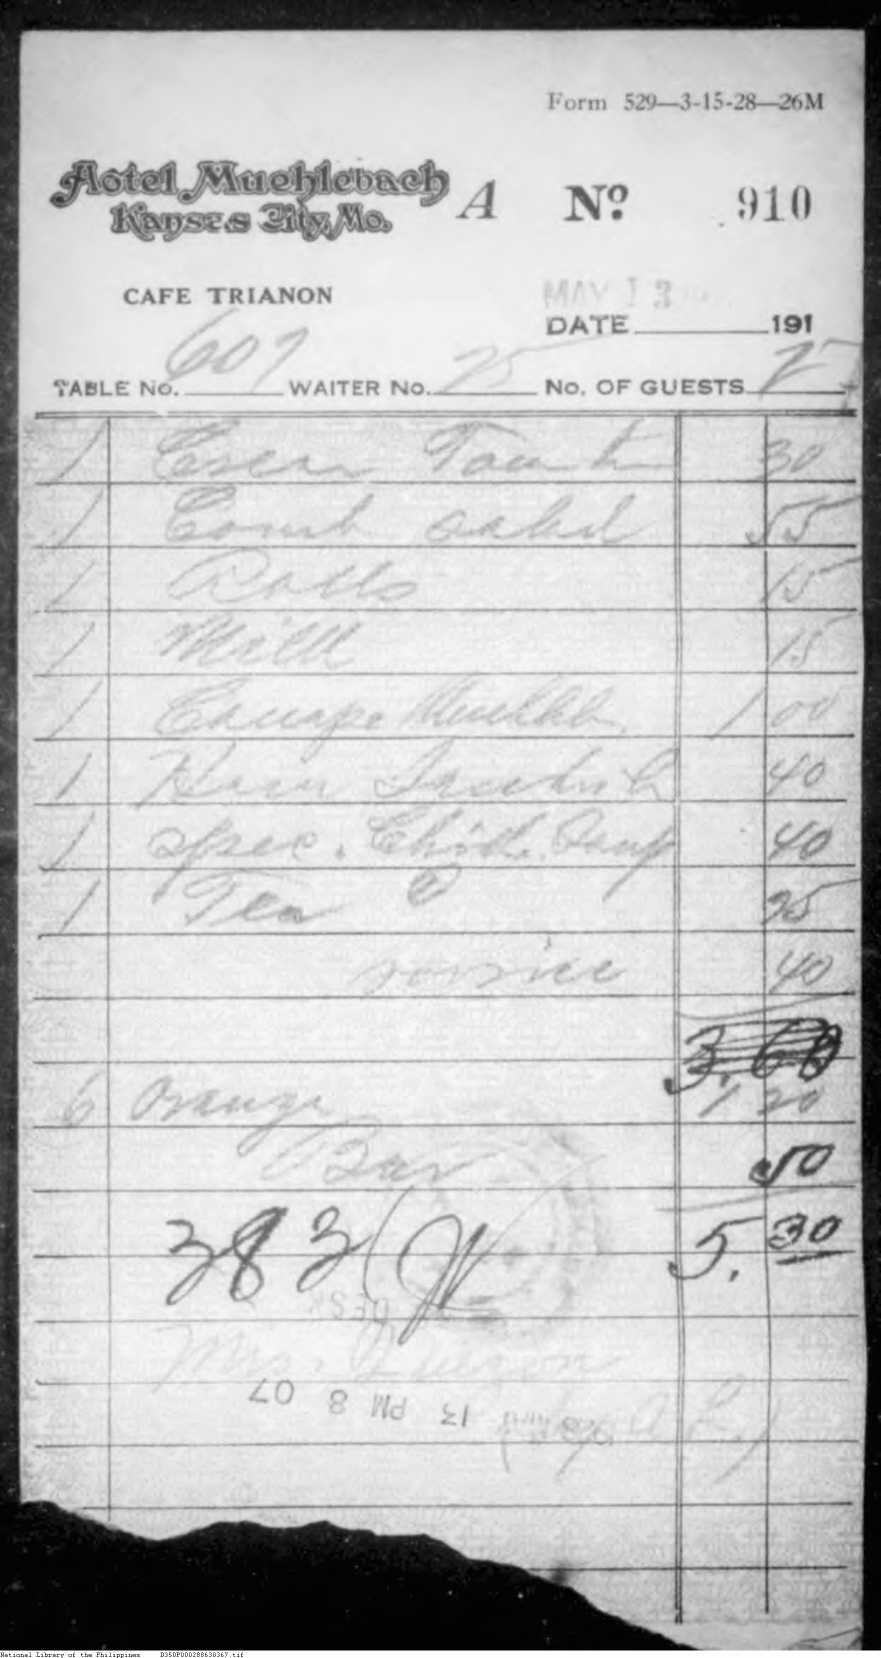 Form 529—3-15-28—26M
Hotel Muehlebach
Kansas City, Mo.
A Nº 910
CAFE TRIANON
MAY 13
DATE 191
TABLE No. 607 WAITER No. 25 No. OF GUESTS 2
1 Cream Tomato 30
1 Comb salad 55
1 Rolls 15
1 Milk 15
1 Canape Muehleb 1 00
1 Ham Sandwich 40
1 Spec. Chick. Soup 40
1 Tea 25
service 40
3.60
6 Orange 1 20
Bar 50
383 5.30
Mrs.
13 PM 8 07
National Library of the Philippines D350P000288638367.tif